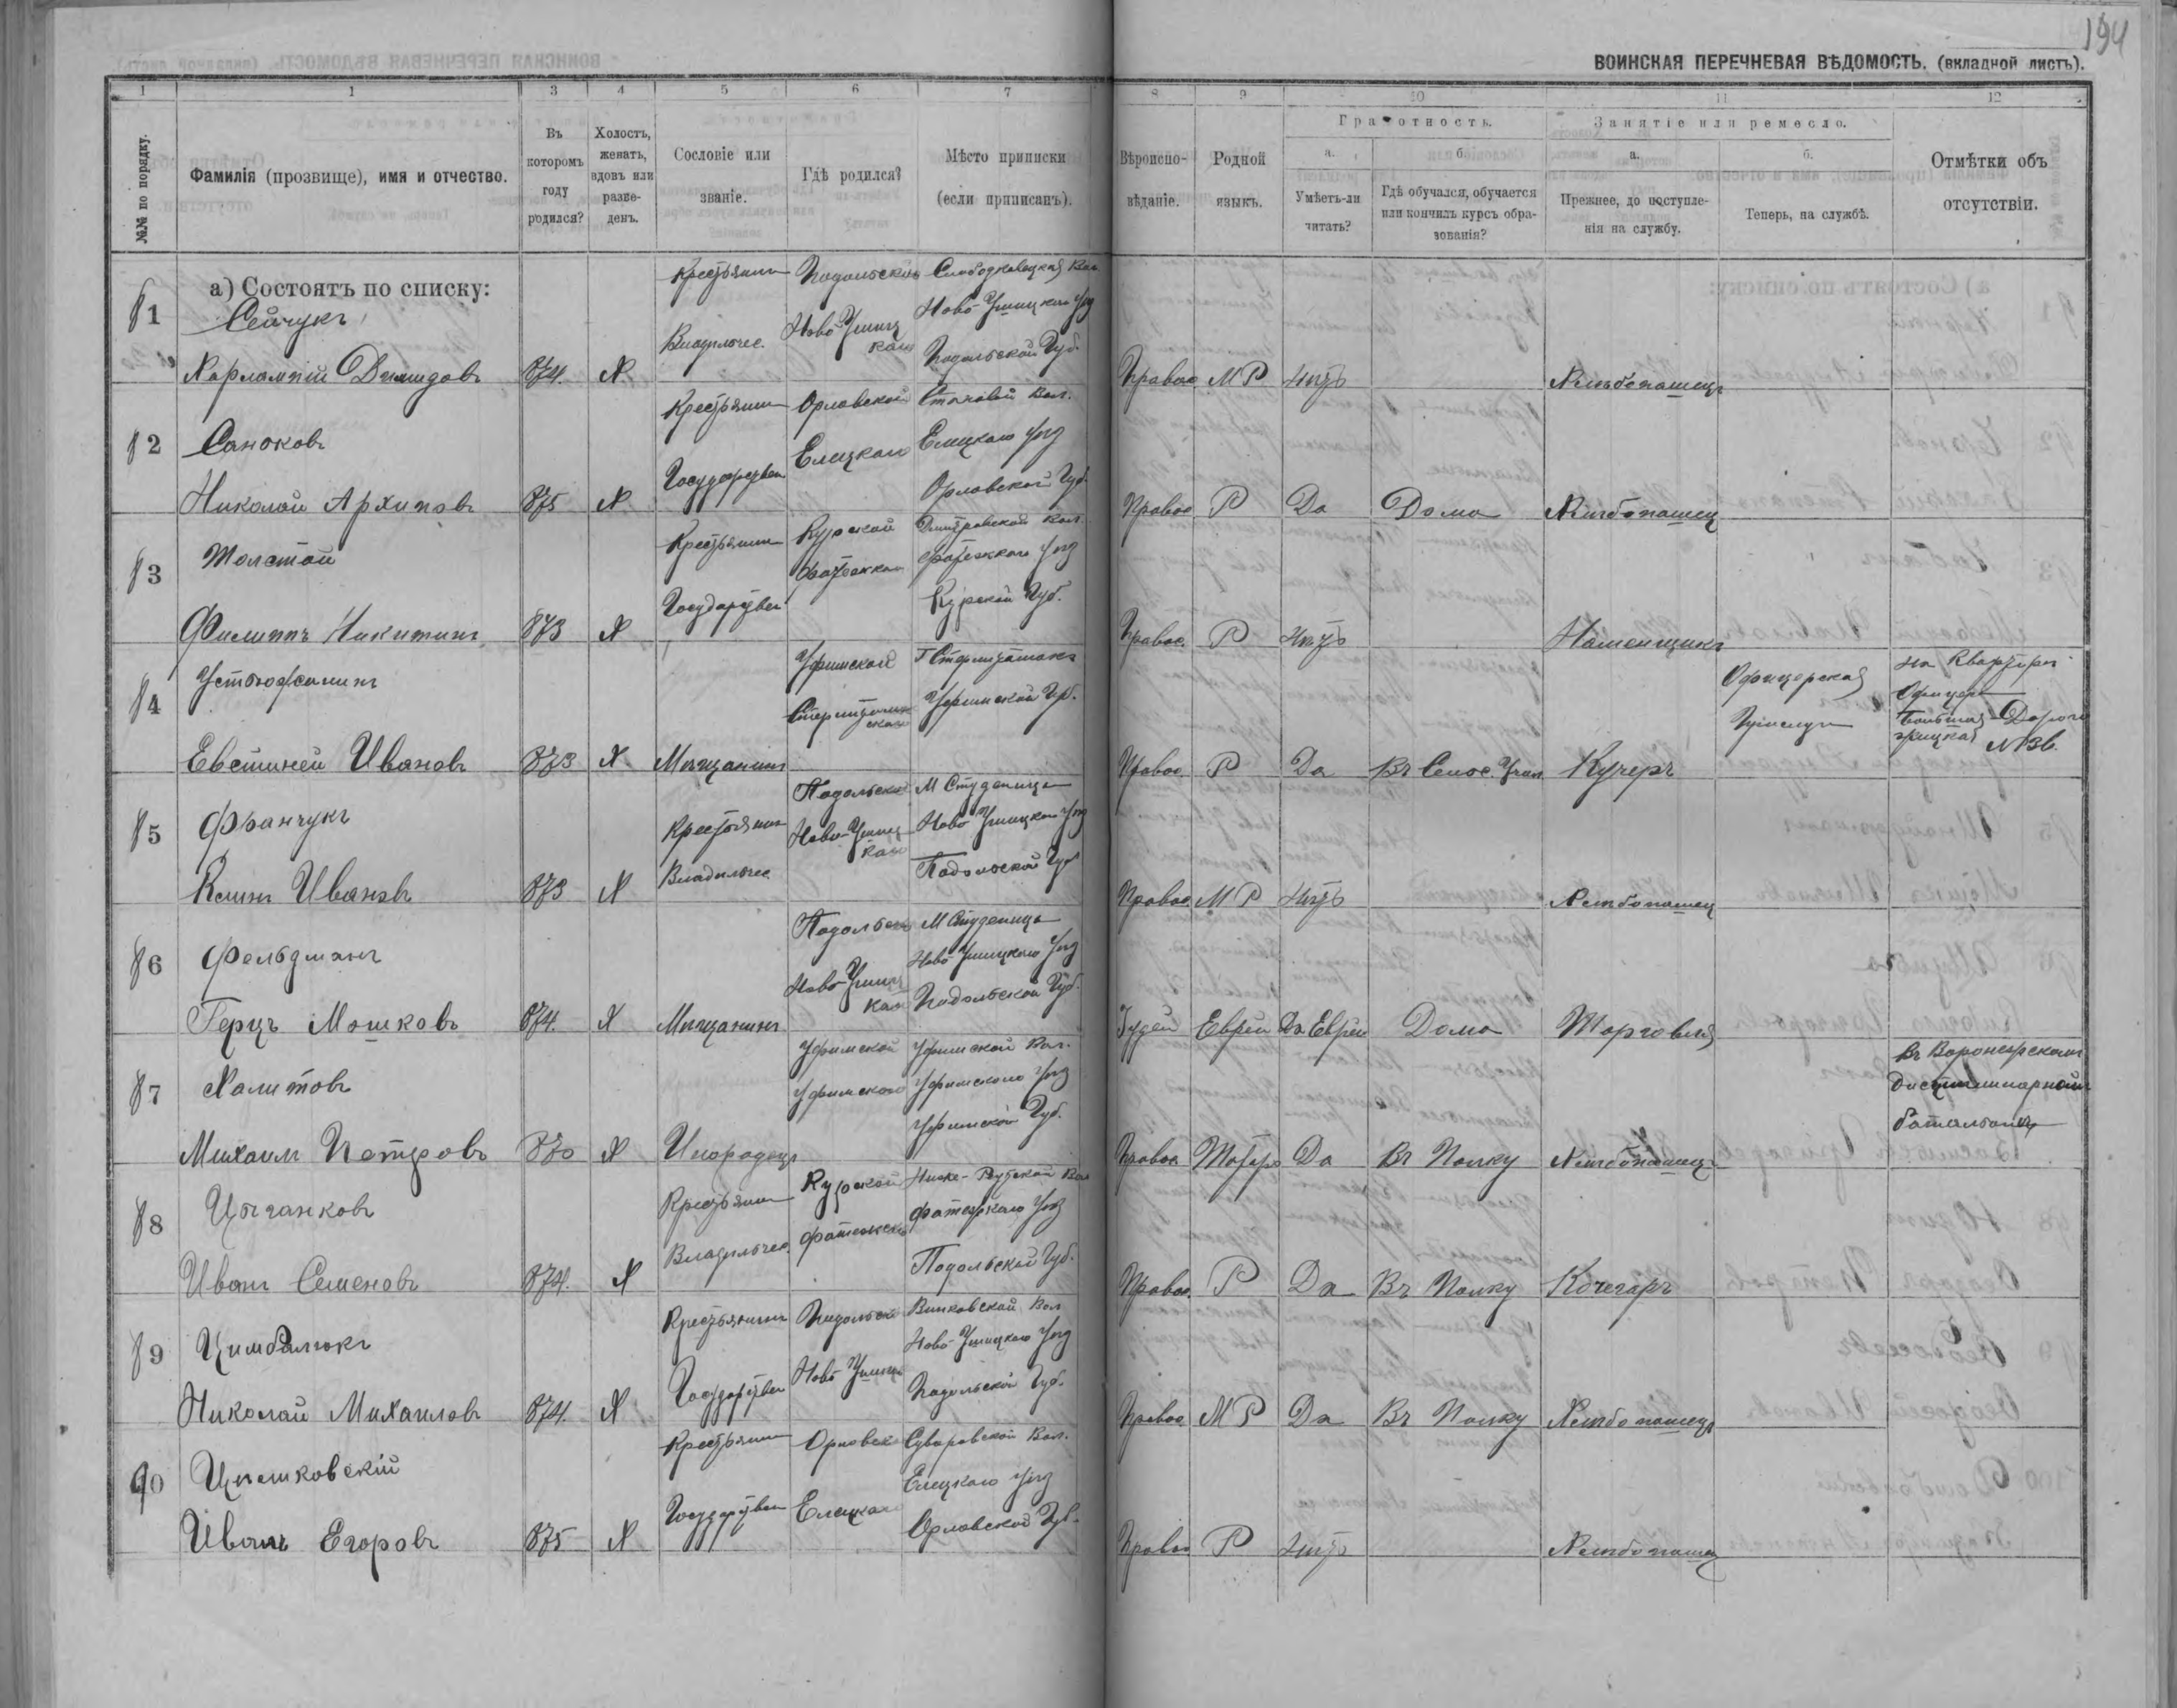 194
ВОИНСКАЯ ПЕРЕЧНЕВАЯ ВѢДОМОСТЬ. (вкладной листъ).
1 1 3 4 5 6 7 8 9 10 11 12
№№ по порядку.
Фамилія (прозвище), имя и отчество.
Въ которомъ году родился?
Холостъ, женатъ, вдовъ или разведенъ.
Сословіе или званіе.
Гдѣ родился?
Мѣсто приписки (если приписанъ).
Вѣроиспо-вѣданіе.
Родной языкъ.
Грамотность.
а. Умѣетъ-ли читать?
б. Гдѣ обучался, обучается или кончилъ курсъ обра-зованія?
Занятіе или ремесло.
а. Прежнее, до поступле-нія на службу.
б. Теперь, на службѣ.
Отмѣтки объ отсутствіи.
а) Состоятъ по списку:
81 Сейчукъ
Харлампій Демидовъ 874. Х
Крестьянин Владельчес.
Подольской Ново-Ушицкаго
Вол. Ново-Ушицкаго Уѣз Подольской Губ.
Правос МР Нѣтъ Хлѣбопашец
82 Саноковъ
Николай Архиповъ 875 Х
Крестьянин Государствен
Орловской Елецкаго
Вол. Елецкаго Уѣз Орловской Губ.
Правос Р Да Дома Хлѣбопашец
83 Толстой
Филиппъ Никитинъ 873 Х
Крестьянин Государствен
Курской Фатежскаго
Дмитровской Вол. Фатежскаго Уѣз Курской Губ.
Правос. Р Нѣтъ
84 Устюжанинъ
Евстигней Ивановъ 873 Х Мѣщанинъ
Уфимской Стерлитамакскаго
Г Стерлитамакъ Уфимской Губ.
Правос. Р Да Въ Селос. Учил Кучеръ
Офицерская Прислуга
на Квартирѣ Офицера Большая Дорогомицкая №36.
85 Фіанчукъ
Клим Ивановъ 873 Х
Крестьянин Владельчес
Подольской Ново-Ушицкаго
М Студеница Ново Ушицкаго Уѣз Подольской Губ
Правос. МР Нѣтъ Хлѣбопашец
86 Фельдманъ
Герцъ Мошковъ 874. Х Мѣщанинъ
Подольской Ново-Ушицкаго
М Студеница Ново-Ушицкаго Уѣз Подольской Губ.
Іудей Еврей Да Еврей Дома Торговля
87 Халитовъ
Михаил Петровъ 870 Х Инородецъ
Уфимской Уфимскаго
Уфимской Вол. Уфимскаго Уѣз Уфимской Губ.
Правос Татар Да Въ Полку Хлѣбопашецъ
Въ Воронежском дисциплинарном баталіонѣ
88 Цыганковъ
Иван Семеновъ 874. Х
Крестьянин Владельчес.
Курской Фатежскаго
Вол Фатежскаго Уѣз Подольской Губ.
Правос. Р Да Въ Полку Кочегаръ
89 Цимбалюкъ
Николай Михаиловъ 874. Х
Крестьянинъ Государствен
Подольск Ново Ушицк
Виньковской Вол Ново-Ушицкаго Уѣз Подольской Губ.
Правос. МР Да Въ Полку Хлѣбопашецъ
90
Иванъ Егоровъ 875 Х
Крестьянин Государствен
Орловск Елецкаго
Суворовской Вол. Елецкаго Уѣз Орловской Губ.
Правос Р Нѣтъ Хлѣбопашец